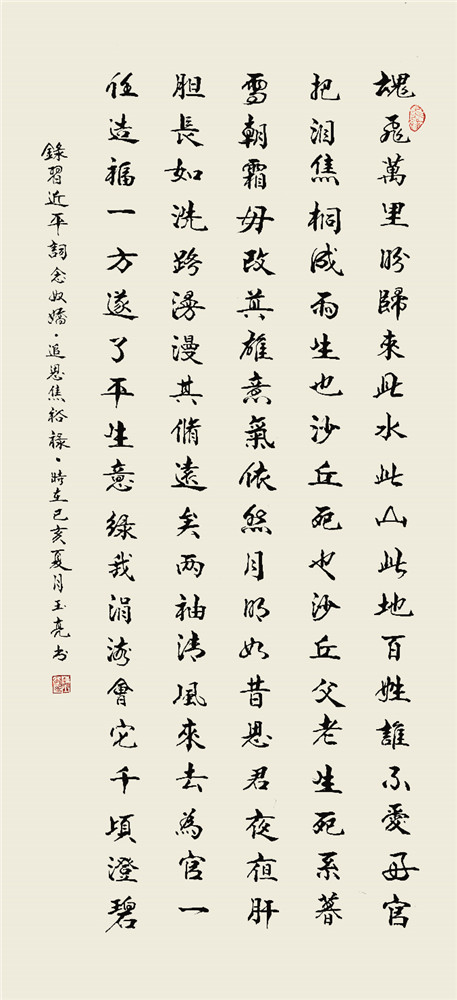 魂飛萬里盼歸來此水此山此地百姓誰不愛好官
把泪焦桐成雨生也沙丘死也沙丘父老生死系暮
雪朝霜毋改其雄意氣依然月明如昔思君夜夜肝
胆長如洗路漫漫其脩遠矣两袖清風來去為官一
任造福一方遂了平生意綠我涓滴會它千頃澄碧
錄習近平詞念奴嬌·追思焦裕祿·時在己亥夏月玉亮书